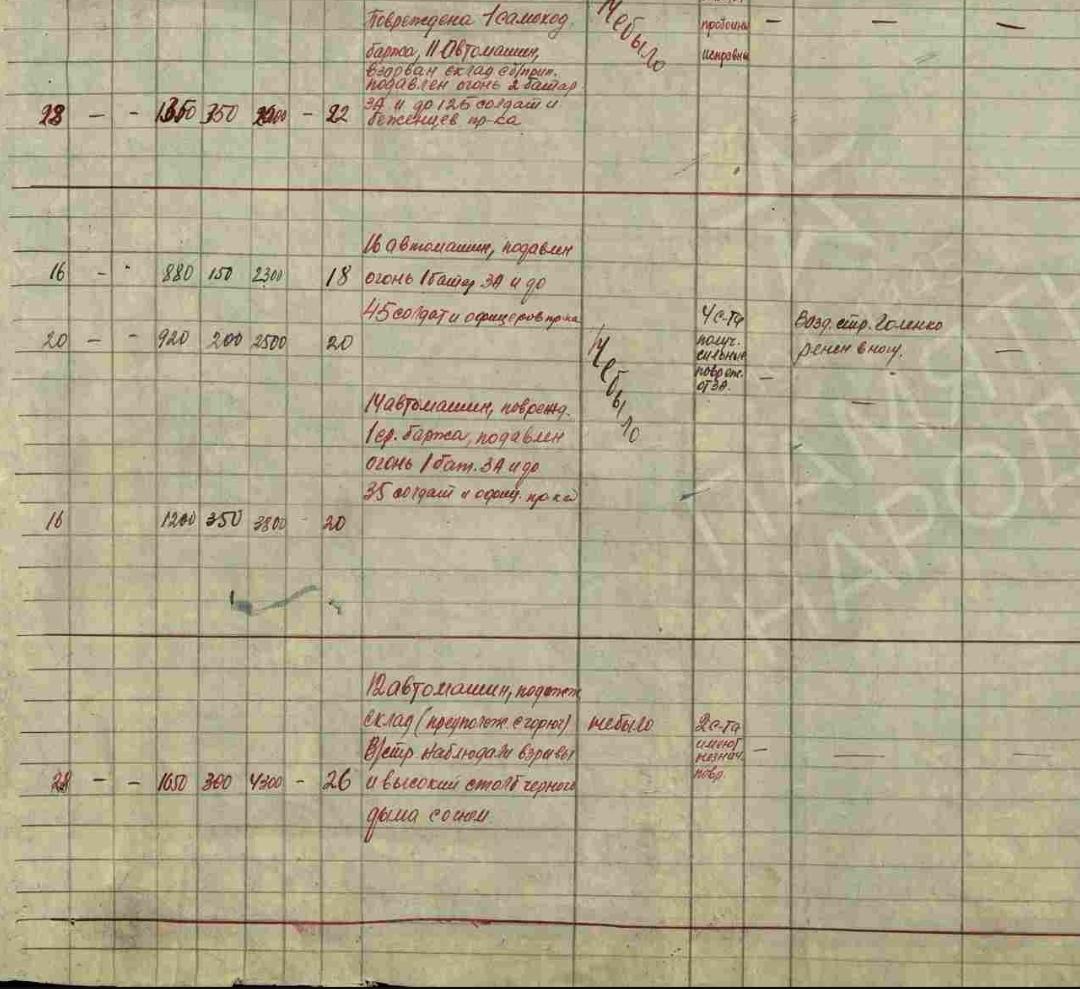 Повреждена 1 самоход.
баржа, 11 Автомашин,
взорван склад б/прип.
подавлен огонь 2 батар
28 — - 1350 350 — 22 ЗА и до 125 солдат и
беженцев пр-ка
Небыло
пробоины — — —
исправны
16 автомашин, подавлен
16 - 880 150 2300 18 огонь 1 батар ЗА и до
45 солдат и офицеров пр-ка
20 — - 920 200 2500 20
Небыло
4 с-та
получ.
сильные
повреж. —
от ЗА.
Возд. стр. Голенко
ранен в ногу. —
—
14 автомашин, поврежд.
1 ср. баржа, подавлен
огонь 1 бат. ЗА и до
35 солдат и офиц. пр-ка
16 1200 350 3800 - 20
12 автомашин, подожжен
склад (предполож. с горюч) небыло 2 с-та
В/стр. наблюдали взрывы имеют — — —
28 — - 1050 300 4300 - 26 и высокий столб черного незнач.
дыма с огнем. повр.
ПАМЯТЬ
НАРОДА